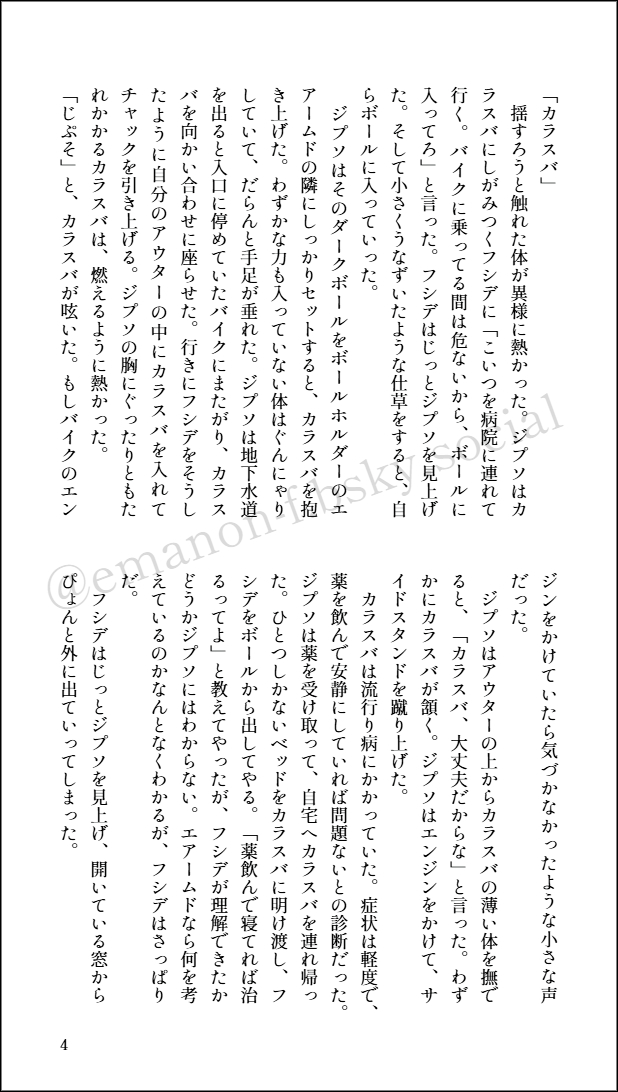 「カラスバ」
　揺すろうと触れた体が異様に熱かった。ジプソはカ
ラスバにしがみつくフシデに「こいつを病院に連れて
行く。バイクに乗ってる間は危ないから、ボールに
入ってろ」と言った。フシデはじっとジプソを見上げ
た。そして小さくうなずいたような仕草をすると、自
らボールに入っていった。
　ジプソはそのダークボールをボールホルダーのエ
アームドの隣にしっかりセットすると、カラスバを抱
き上げた。わずかな力も入っていない体はぐんにゃり
していて、だらんと手足が垂れた。ジプソは地下水道
を出ると入口に停めていたバイクにまたがり、カラス
バを向かい合わせに座らせた。行きにフシデをそうし
たように自分のアウターの中にカラスバを入れて
チャックを引き上げる。ジプソの胸にぐったりともた
れかかるカラスバは、燃えるように熱かった。
「じぷそ」と、カラスバが呟いた。もしバイクのエン
ジンをかけていたら気づかなかったような小さな声
だった。
　ジプソはアウターの上からカラスバの薄い体を撫で
ると、「カラスバ、大丈夫だからな」と言った。わず
かにカラスバが頷く。ジプソはエンジンをかけて、サ
イドスタンドを蹴り上げた。
　カラスバは流行り病にかかっていた。症状は軽度で、
薬を飲んで安静にしていれば問題ないとの診断だった。
ジプソは薬を受け取って、自宅へカラスバを連れ帰っ
た。ひとつしかないベッドをカラスバに明け渡し、フ
シデをボールから出してやる。「薬飲んで寝てれば治
るってよ」と教えてやったが、フシデが理解できたか
どうかジプソにはわからない。エアームドなら何を考
えているのかなんとなくわかるが、フシデはさっぱり
だ。
　フシデはじっとジプソを見上げ、開いている窓から
ぴょんと外に出ていってしまった。
4
@emanon-f.bsky.social